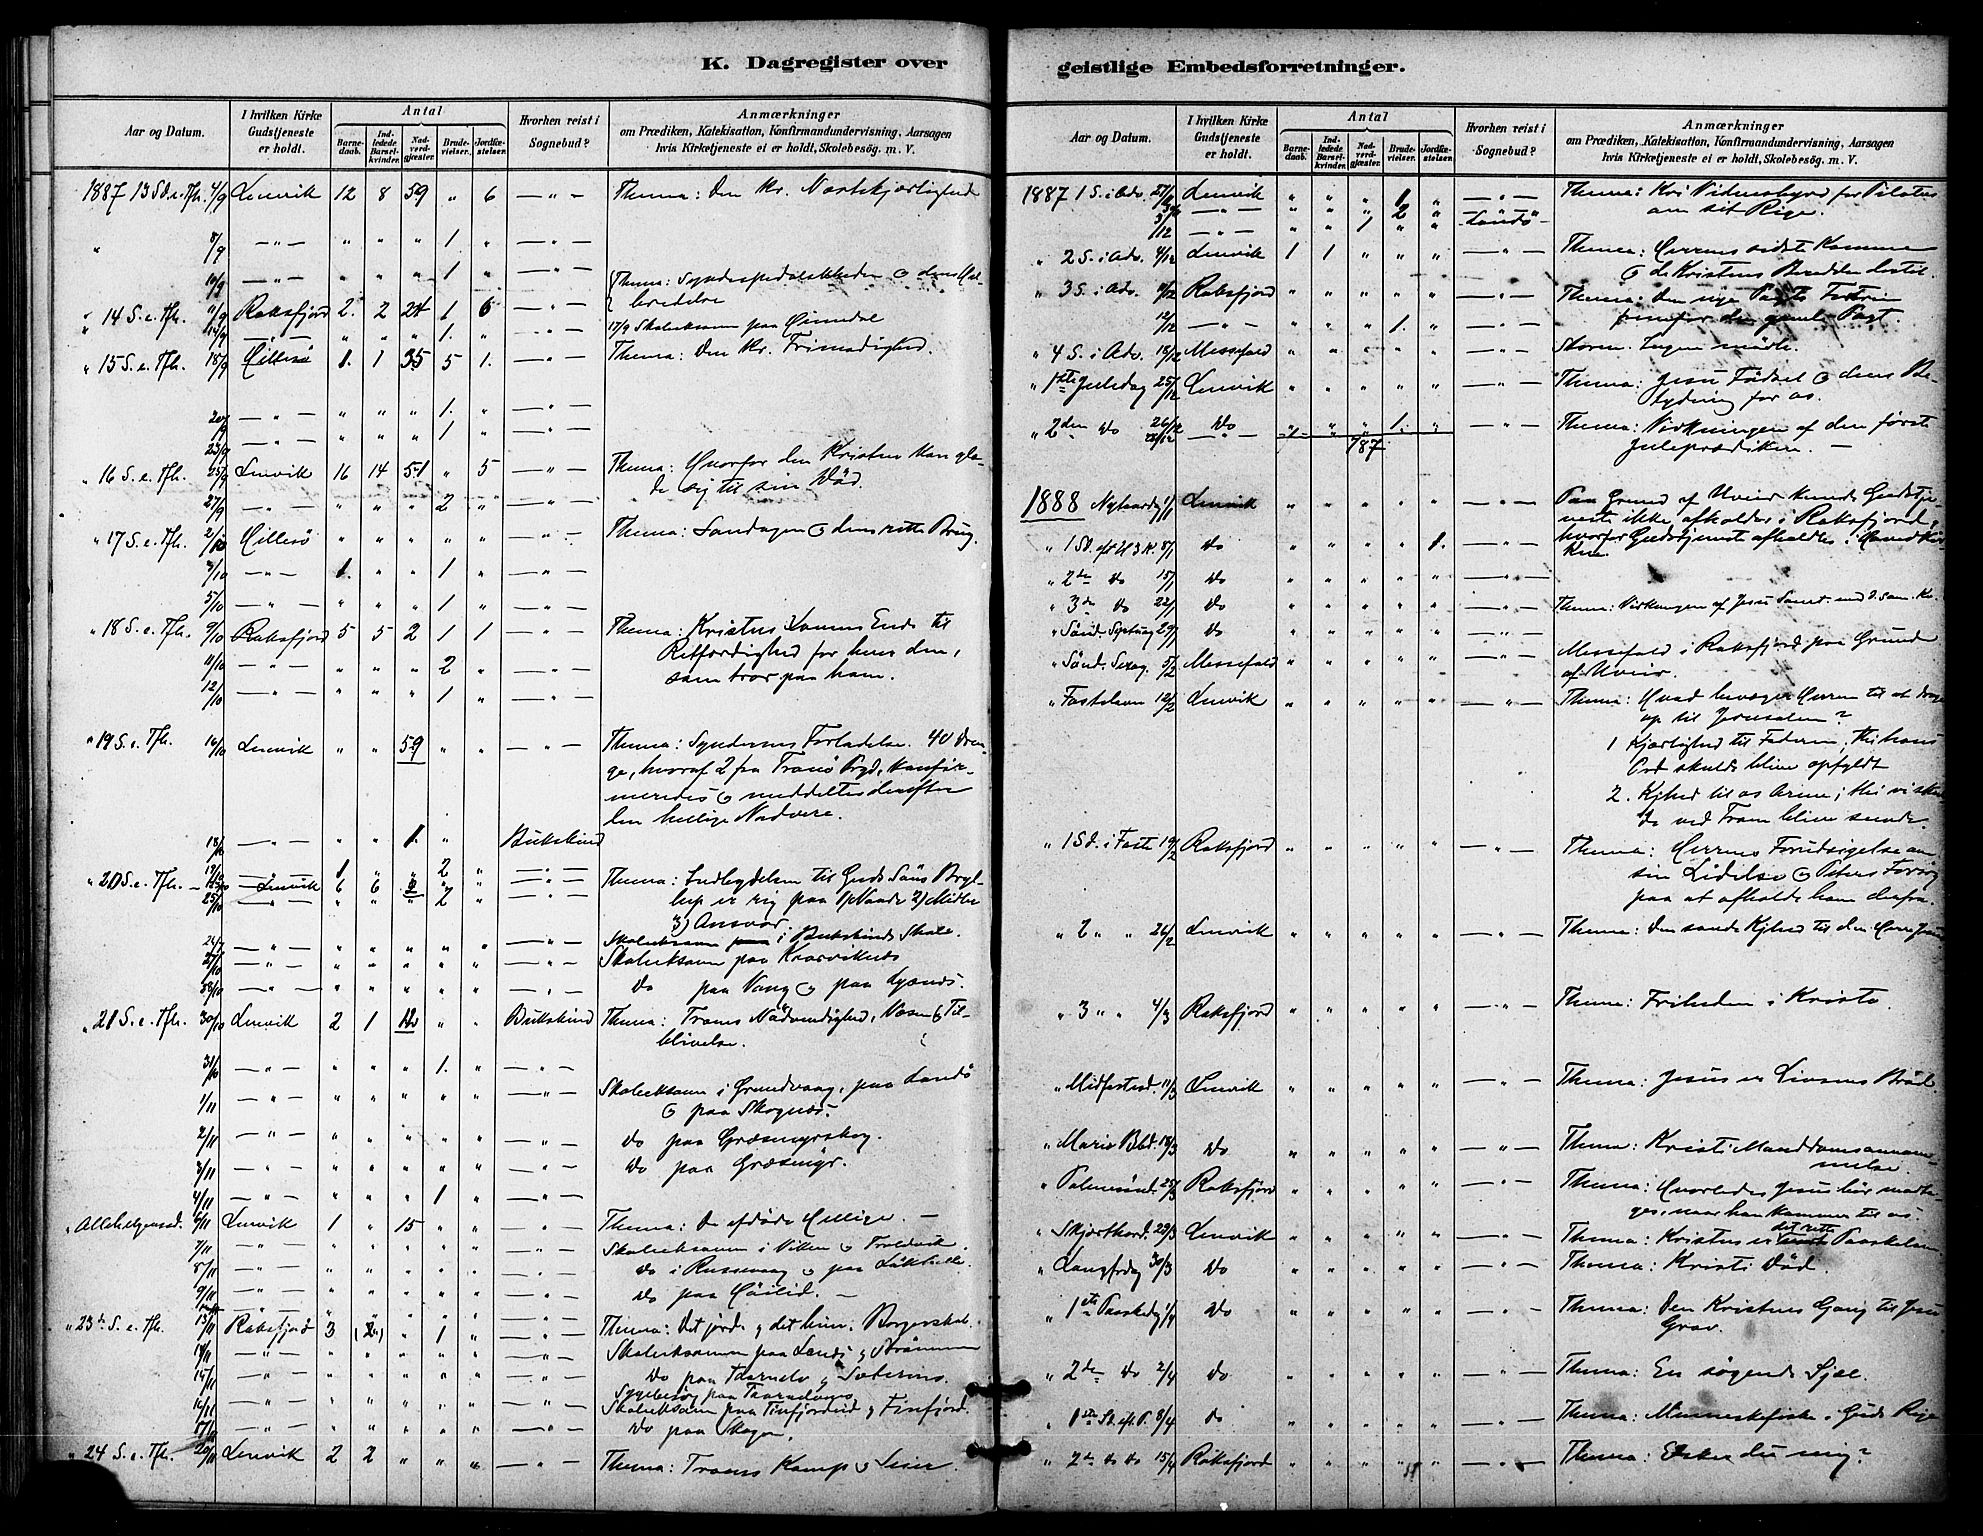 K. Dagregister over geistlige Embedsforretninger.
Aar og Datum. I hvilken Kirke Gudstjeneste er holdt. Antal Barnedaab. Indledede Barselkvinder. Nadverdgjæster. Brudevielser. Jordfæstelser. Hvorhen reist i Sognebud? Anmærkninger om Prædiken, Katekisation, Konfirmandundervisning, Aarsagen hvis Kirketjeneste ei er holdt, Skolebesøg. m. V.
1887 13 Sd. e. Tfh. 4/9 Lenvik 12 8 59 „ 6 — „ — Thema: Den kr. Næstekjærlighed
„ 8/9 — „ — „ „ „ 1. „ — „ —
10/9 — „ — „ „ „ 1 „ — „ — Thema: Syndespedalskheden og dens Hel-
„ 14 S. e. Tfh. 11/9 Roksfjord 2. 2 24 1 6 — „ — bredelse
„ 14/9 — „ — „ „ „ 1. „ — „ — 17/9 Skoleeksam paa Gimedal
„ 15 S. e. Tfh. 18/9 Hillesø 1. 1 35 5 1. — „ — Thema: Den kr. Frimodighed.
20/9 — „ — „ „ „ 1. „ — „ —
23/9 — „ — „ „ „ 1 „ — „ —
„ 16 S. e. Tfh. 25/9 Lenvik 16 14 51 „ 5 — „ — Thema: Hvorfor den Kristen kan glæ-
de sig til sin Død.
27/9 — „ — „ „ „ 2 „ — „ —
„ 17 S. e. Tfh. 2/10 Hillesø „ „ „ „ „ — „ — Thema: Søndagen og dens rette Brug.
3/10 — „ — 1. „ „ 1 „ — „ —
5/10 — „ — „ „ „ 1. „ — „ —
„ 18 S. e. Tfh. 9/10 Roksfjord 5 5 2 1 1 — „ — Thema: Kristus Lovens Ende til
11/10 — „ — „ „ „ 2 „ — „ — Retfærdighed for hver den,
12/10 — „ — „ „ „ 1 „ — „ — som tror paa ham.
„ 19 S. e. Tfh. 16/10 Lenvik „ „ 59 „ „ — „ — Thema: Syndernes Forladelse. 40 Dren-
ge, hvoraf 2 fra Tranø Prgd, konfir-
meredes og meddeltes derefter
den hellige Nadvere.
18/10 — „ — „ „ 1. „ Bukskind
19/10 — „ — 1 „ „ 2 „ — „ —
„ 20 S. e. Tfh. Lenvik 6 6 2 „ „ — „ — Thema: Indbydelsen til Guds Søns Bryl-
25/10 — „ — „ „ „ 2 „ — „ — lup er rig paa 1) Naade 2) Midler
3) Ansvar
— „ — „ „ „ „ „ — „ — Skoleeksam i Bukskinds Skole.
27/10 — „ — „ „ „ „ „ — „ — Skoleeksam paa Kaarvikens
28/10 — „ — „ „ „ „ „ — „ — Do paa Vang og paa Lysnes.
„ 21 S. e. Tfh. 30/10 Lenvik 2 1 12 „ „ Bukskind Thema: Troens Nødvendighed, Væsen og Til-
blivelse.
31/10 — „ — „ „ „ 1. „ — „ —
1/11 — „ — „ „ „ „ „ — „ — Skoleeksam i Grundvaag, paa Sandø
og paa Skognæs.
2/11 — „ — „ „ „ „ „ — „ — Do paa Græsmyrskog.
3/11 — „ — „ „ „ „ „ — „ — Do paa Græsmyr.
4/11 — „ — „ „ „ 1 „ — „ —
„ Allehelgensd. 6/11 Lenvik 1 „ 15 „ „ — „ — Thema: De afdøde Hellige. —
7/11 — „ — „ „ „ „ „ — „ — Skoleeksamen i Viken og Troldvik.
8/11 — „ — „ „ „ „ „ — „ — Do i Russevaag og paa
9/11 — „ — „ „ „ „ „ — „ — Do paa —
„ 23de S. e. Tfh. 13/11 Roksfjord 3 (2) „ 1 „ — „ — Thema: Det jordi. og det him. Borgerskab.
14/11 — „ — „ „ „ „ „ — „ — Skoleeksamen paa Lands og Strømmen
15/11 — „ — „ „ „ „ „ — „ — Do paa Taarnelv og
Sygebesøg paa
16/11 — „ — „ „ „ „ „ — „ — Skoleeksam paa Finfjordeid og Finfjord.
17/11 — „ — „ „ „ „ „ — „ — Do paa Skogen.
„ 24 S. e. Tfh. 20/11 Lenvik 2 2 „ „ „ — „ — Thema: Troens Kamp og Seier
Aar og Datum. I hvilken Kirke Gudstjeneste er holdt. Antal Barnedaab. Indledede Barselkvinder. Nadverdgjæster. Brudevielser. Jordfæstelser. Hvorhen reist i Sognebud? Anmærkninger om Prædiken, Katekisation, Konfirmandundervisning, Aarsagen hvis Kirketjeneste ei er holdt, Skolebesøg. m. V.
1887 1 S. i Adv. 27/11 Lenvik „ „ „ 1. „ — „ — Thema: Kri Vidnesbyrd for Pilatus
— „ — „ „ „ 2 „ — „ — om sit Rige.
3/12 — „ — „ „ 1 „ „ Sandø
„ 2 S. i Adv. 4/12 Lenvik 1 1 „ „ „ — „ — Thema: Herrens sidste Komme
og de Kristnes Beredelse dertil.
„ 3 S. i Adv. 11/12 Roksfjord „ „ „ „ „ — „ — Thema: Den nye Pagts Fortrin
12/12 — „ — „ „ „ 1. „ — „ — fremfor den gamle Pagt.
„ 4 S. i Adv. 18/12 Messefald „ „ „ „ „ — „ — Storm. Ingen mødte.
„ 1ste Juledag 25/12 Lenvik „ „ „ „ „ — „ — Thema: Jesu Fødsel og dens Be-
tydning for os.
„ 2den Do 26/12 Do „ „ „ 1. „ — „ — Thema: Virkningen af den første
28/12 — „ — 787 Juleprædiken. —
1888 Nytaarsdg 1/1 Lenvik „ „ „ „ „ — „ — Paa Grund af Uveir kunde Gudstje-
neste ikke afholdes i Roksfjord,
„ 1 Sd. eft H 3 K. 8/1 Do „ „ „ „ 1. — „ — hvorfor Gudstjeneste afholdtes i Hovedkir-
ken.
„ 2de Do 15/1 Do „ „ „ „ „ — „ —
„ 3de Do 22/1 Do „ „ „ „ „ — „ — Thema: Virkningen af Jesu Samt. med D. Sam. Kv.
„ Sønd. Septuag 29/1 Do „ „ „ „ „ — „ —
„ Sønd. Sexag. 5/2 Messefald „ „ „ „ „ — „ — Messefald i Roksfjord paa Grund
af Uveir.
„ Fastelavn 12/2 Lenvik „ „ „ „ „ — „ — Thema: Hvad bevæger Herren til at drage
op til Jerusalem?
1 Kjærlighed til Faderen, thi hans
Ord skulde blive opfyldt
2. Kjhed til os Arme; thi vi skul-
de ved Troen blive seende.
„ 1 Sd. i Faste 19/2 Roksfjord „ „ „ „ „ — „ — Thema: Herrens Forudsigelse om
sin Lidelse og Peters Forsøg
paa at afholde ham derfra.
„ 2 „ „ 26/2 Lenvik „ „ „ „ „ — „ — Thema: Den sande Kjhed til den Herre Jesus
„ 3 „ „ 4/3 Roksfjord „ „ „ „ „ — „ — Thema: Friheden i Kristo
„ Midfastesd. 11/3 Lenvik „ „ „ „ „ — „ — Thema: Jesus er Livsens Brød.
„ Mariæ Bbd. 18/3 Do „ „ „ „ „ — „ — Thema: Kristi Manddomsannam-
melse.
„ Palmesønd. 25/3 Roksfjord „ „ „ „ „ — „ — Thema: Hvorledes Jesus bør modta-
ges, naar han kommer til os.
„ Skjærthord. 29/3 Lenvik „ „ „ „ „ — „ — Thema: Kristus er det rette Paaskelam
„ Langfredag 30/3 Do „ „ „ „ „ — „ — Thema: Kristi Død.
„ 1ste Paaskedg 1/4 Do „ „ „ „ „ — „ — Thema: Den Kristnes Gang til Jesu
Grav.
„ 2den Do 2/4 Do „ „ „ „ „ — „ — Thema: En søgende Sjæl.
„ 1ste Sd. eft P. 8/4 Do „ „ „ „ „ — „ — Thema: Menneskefiske i Guds Rige
„ 2de do do 15/4 Roksfjord „ „ „ „ — „ — Thema: Elsker du mig?